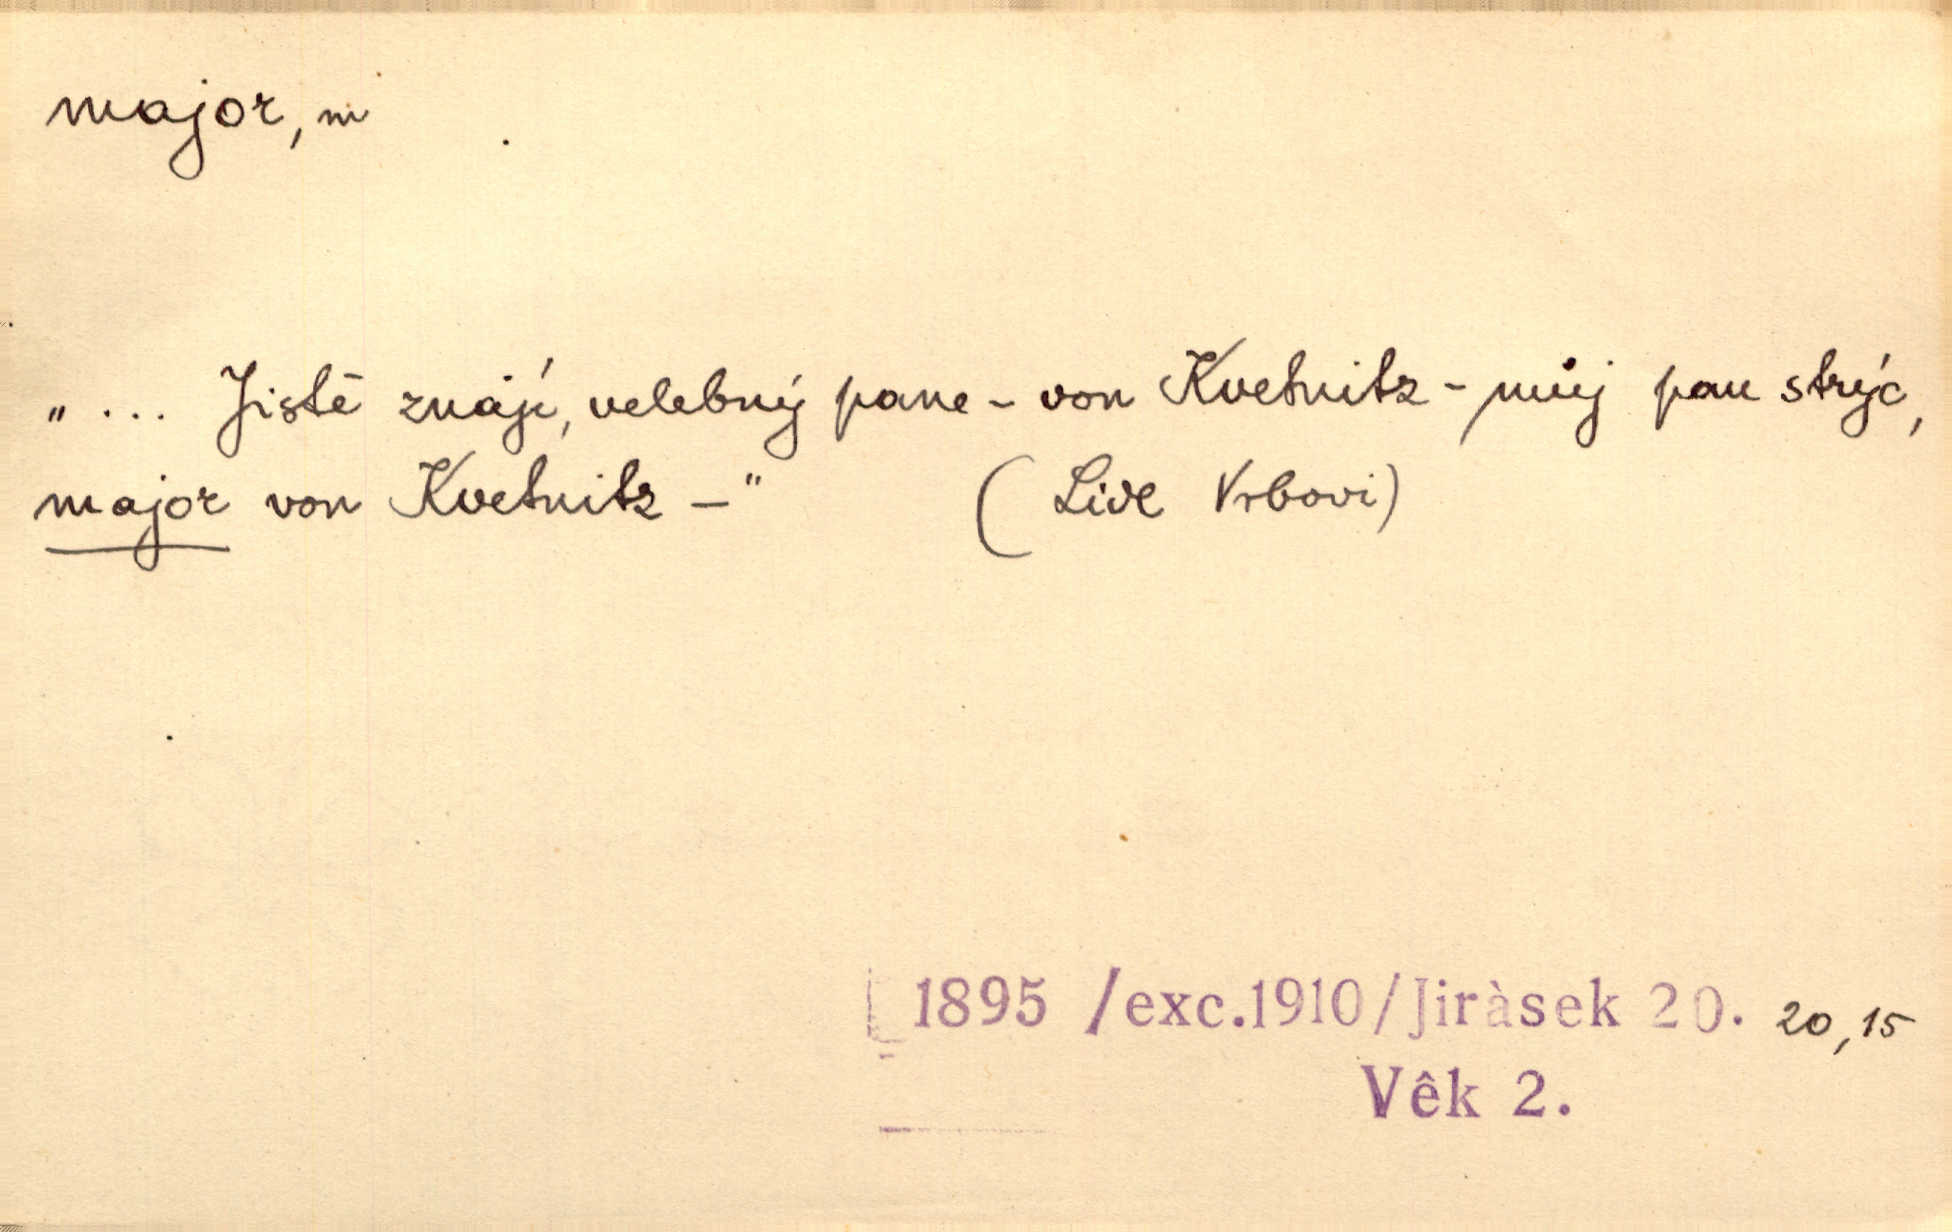 major, m
„ ... Jistě znají, velebný pane – von Kvetnitz – můj pan strýc,
major von Kvetnitz – " ( Live Vrbovi)
1895 /exc.1910/Jiràsek 20. 20,15
Vêk 2.